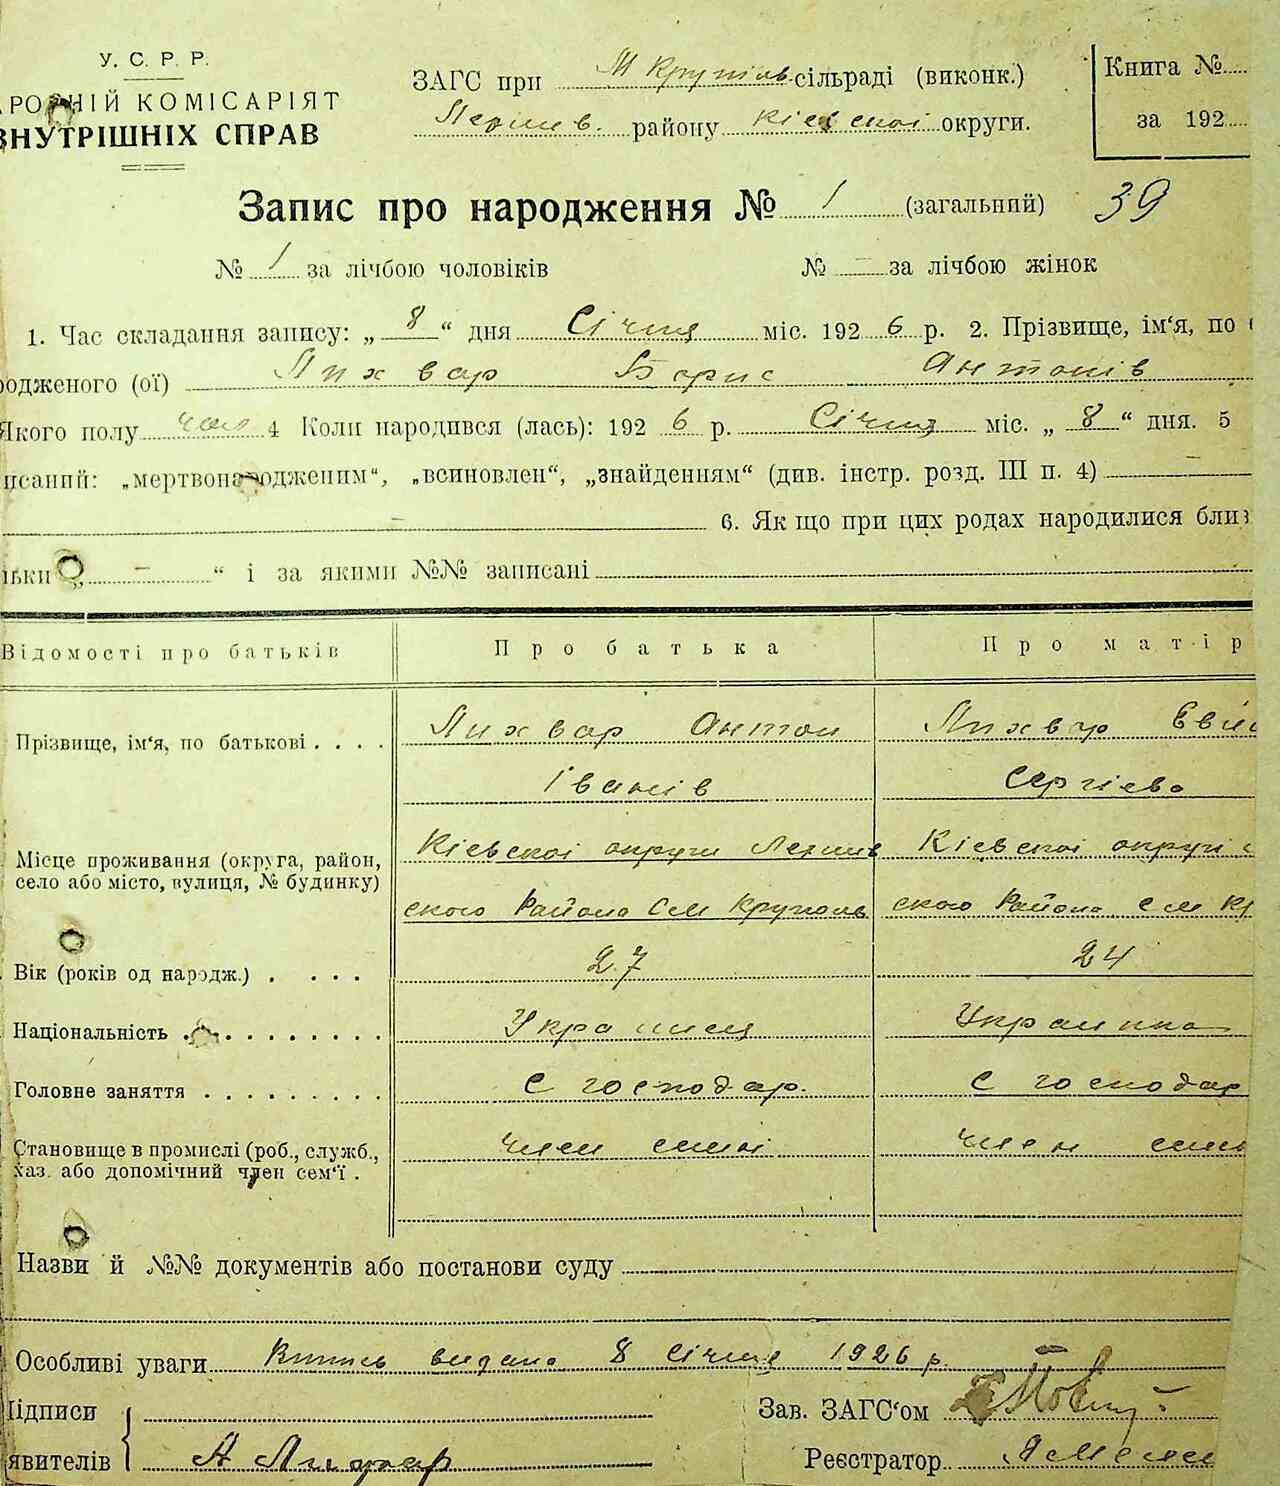 У. С. Р. Р.
РОДНІЙ КОМІСАРІЯТ
ВНУТРІШНІХ СПРАВ
ЗАГС при М Круполь сільраді (виконк.)
району Кіевскоі округи.
Книга №
за 192
Запис про народження № 1 (загальний) 39
№ 1 за лічбою чоловіків № — за лічбою жінок
1. Час складання запису: „ 8 “ дня Січня міс. 192 6 р. 2. Прізвище, ім‘я, по
родженого (ої) Лихвар Борис Антонів
Якого полу чоло 4 Коли народився (лась): 192 6 р. Січня міс. „ 8 “ дня. 5
исаний: „мертвонародженим“, „всиновлен“, „знайденням“ (див. інстр. розд. III п. 4) —
— 6. Як що при цих родах народилися близ
ьки „ — “ і за якими №№ записані
Відомості про батьків
Про батька
Про матір
Прізвище, ім‘я, по батькові . . . .
Лихвар Антон
Іванів
Лихвар
Сергіева
Місце проживання (округа, район,
село або місто, вулиця, № будинку)
Кіевскоі округи
ского Района См Круполь
Кіевскоі округі
ского Района См Кр
Вік (років од народж.) . . . .
27
24
Національність . . . . . . . . .
Украинец
Украинка
Головне заняття . . . . . . . . .
С господар.
С господар
Становище в промислі (роб., служб.,
хаз. або допомічний член сем‘ї .
член симі
член сим
Назви й №№ документів або постанови суду
Особливі уваги видана 8 Січня 1926 р.
Підписи
явителів
А Лихвар
Зав. ЗАГС‘ом
Реєстратор